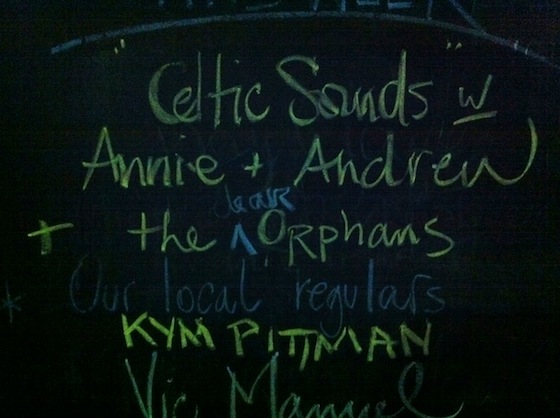 THIS WEEK
"Celtic Sounds" w/
Annie + Andrew
+ the dear Orphans
* Our local regulars
KYM PITTMAN
Vic Manuel